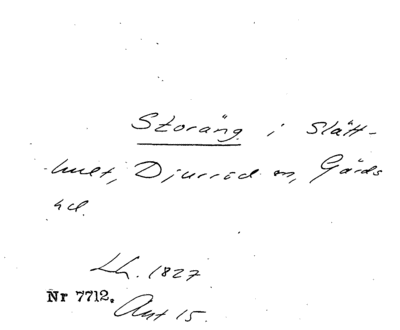 Storäng i Slätt-
hult, Djurröd sn, Gärds
hd.
Lh. 1827
Nr 7712.
Akt 15.